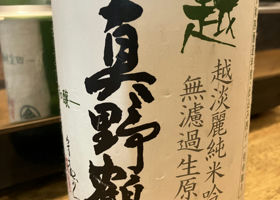 越
越淡麗純米吟
無濾過生原
真野鶴